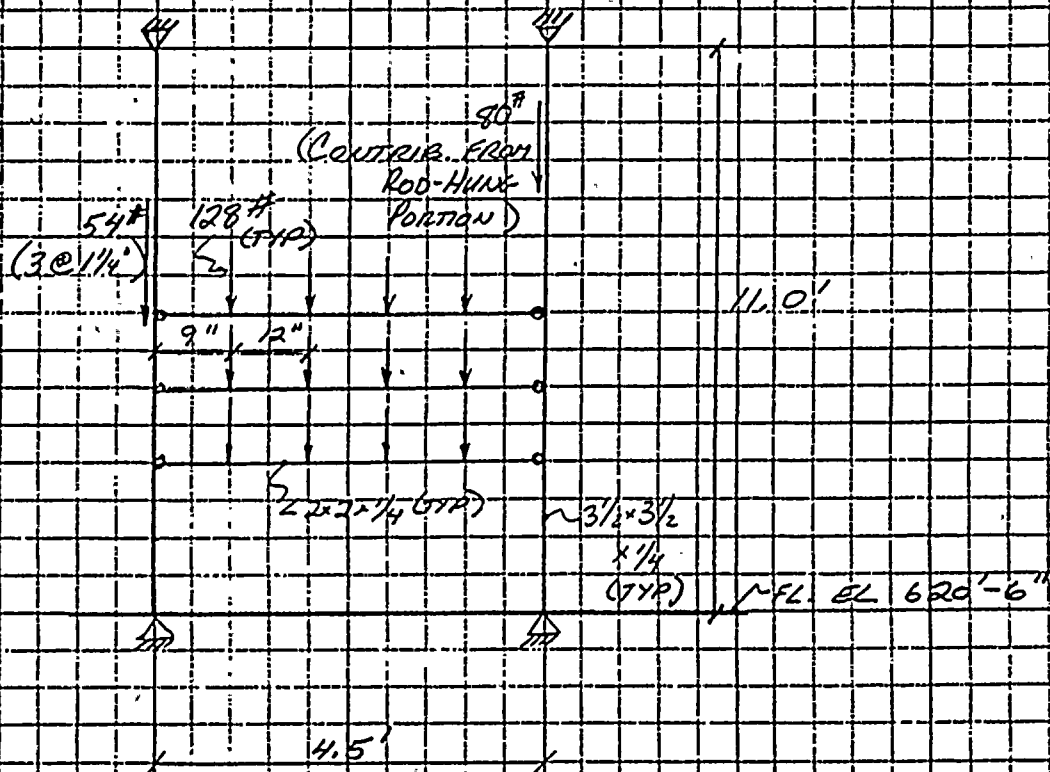 80#
(CONTRIB. FROM
ROD-HUNG
PORTION)
54#
(3 @ 1 1/4"
128#
(TYP)
11.0'
9" 12"
L 2×2×1/4 (TYP)
3 1/2×3 1/2
× 1/4
(TYP)
FL. EL 620'-6"
4.5'